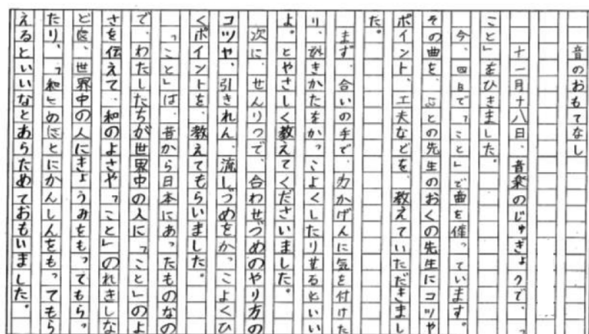 音のおもてなし
十一月十八日、音楽のじゅぎょうで、「
こと」をひきました。
今、四日で「こと」で曲を作っています。
その曲を、ことの先生のおくの先生にコツや
ポイント、工夫などを、教えていただきまし
た。
まず、合いの手で、力かげんに気を付けた
り、ひきかたをかっこよくしたりするといい
よ。とやさしく教えてくださいました。
次に、せんりつで、合わせづめのやり方の
コツや、引きれん、流しづめをかっこよくひ
くポイントを、教えてもらいました。
「こと」は、昔から日本にあったものなの
で、わたしたちが世界中の人に「こと」のよ
さを伝えて、和のよさや「こと」のれきしな
ど、世界中の人にきょうみをもってもら
たり、「和」のことにかんしんをもってもら
えるといいなとあらためておもいました。